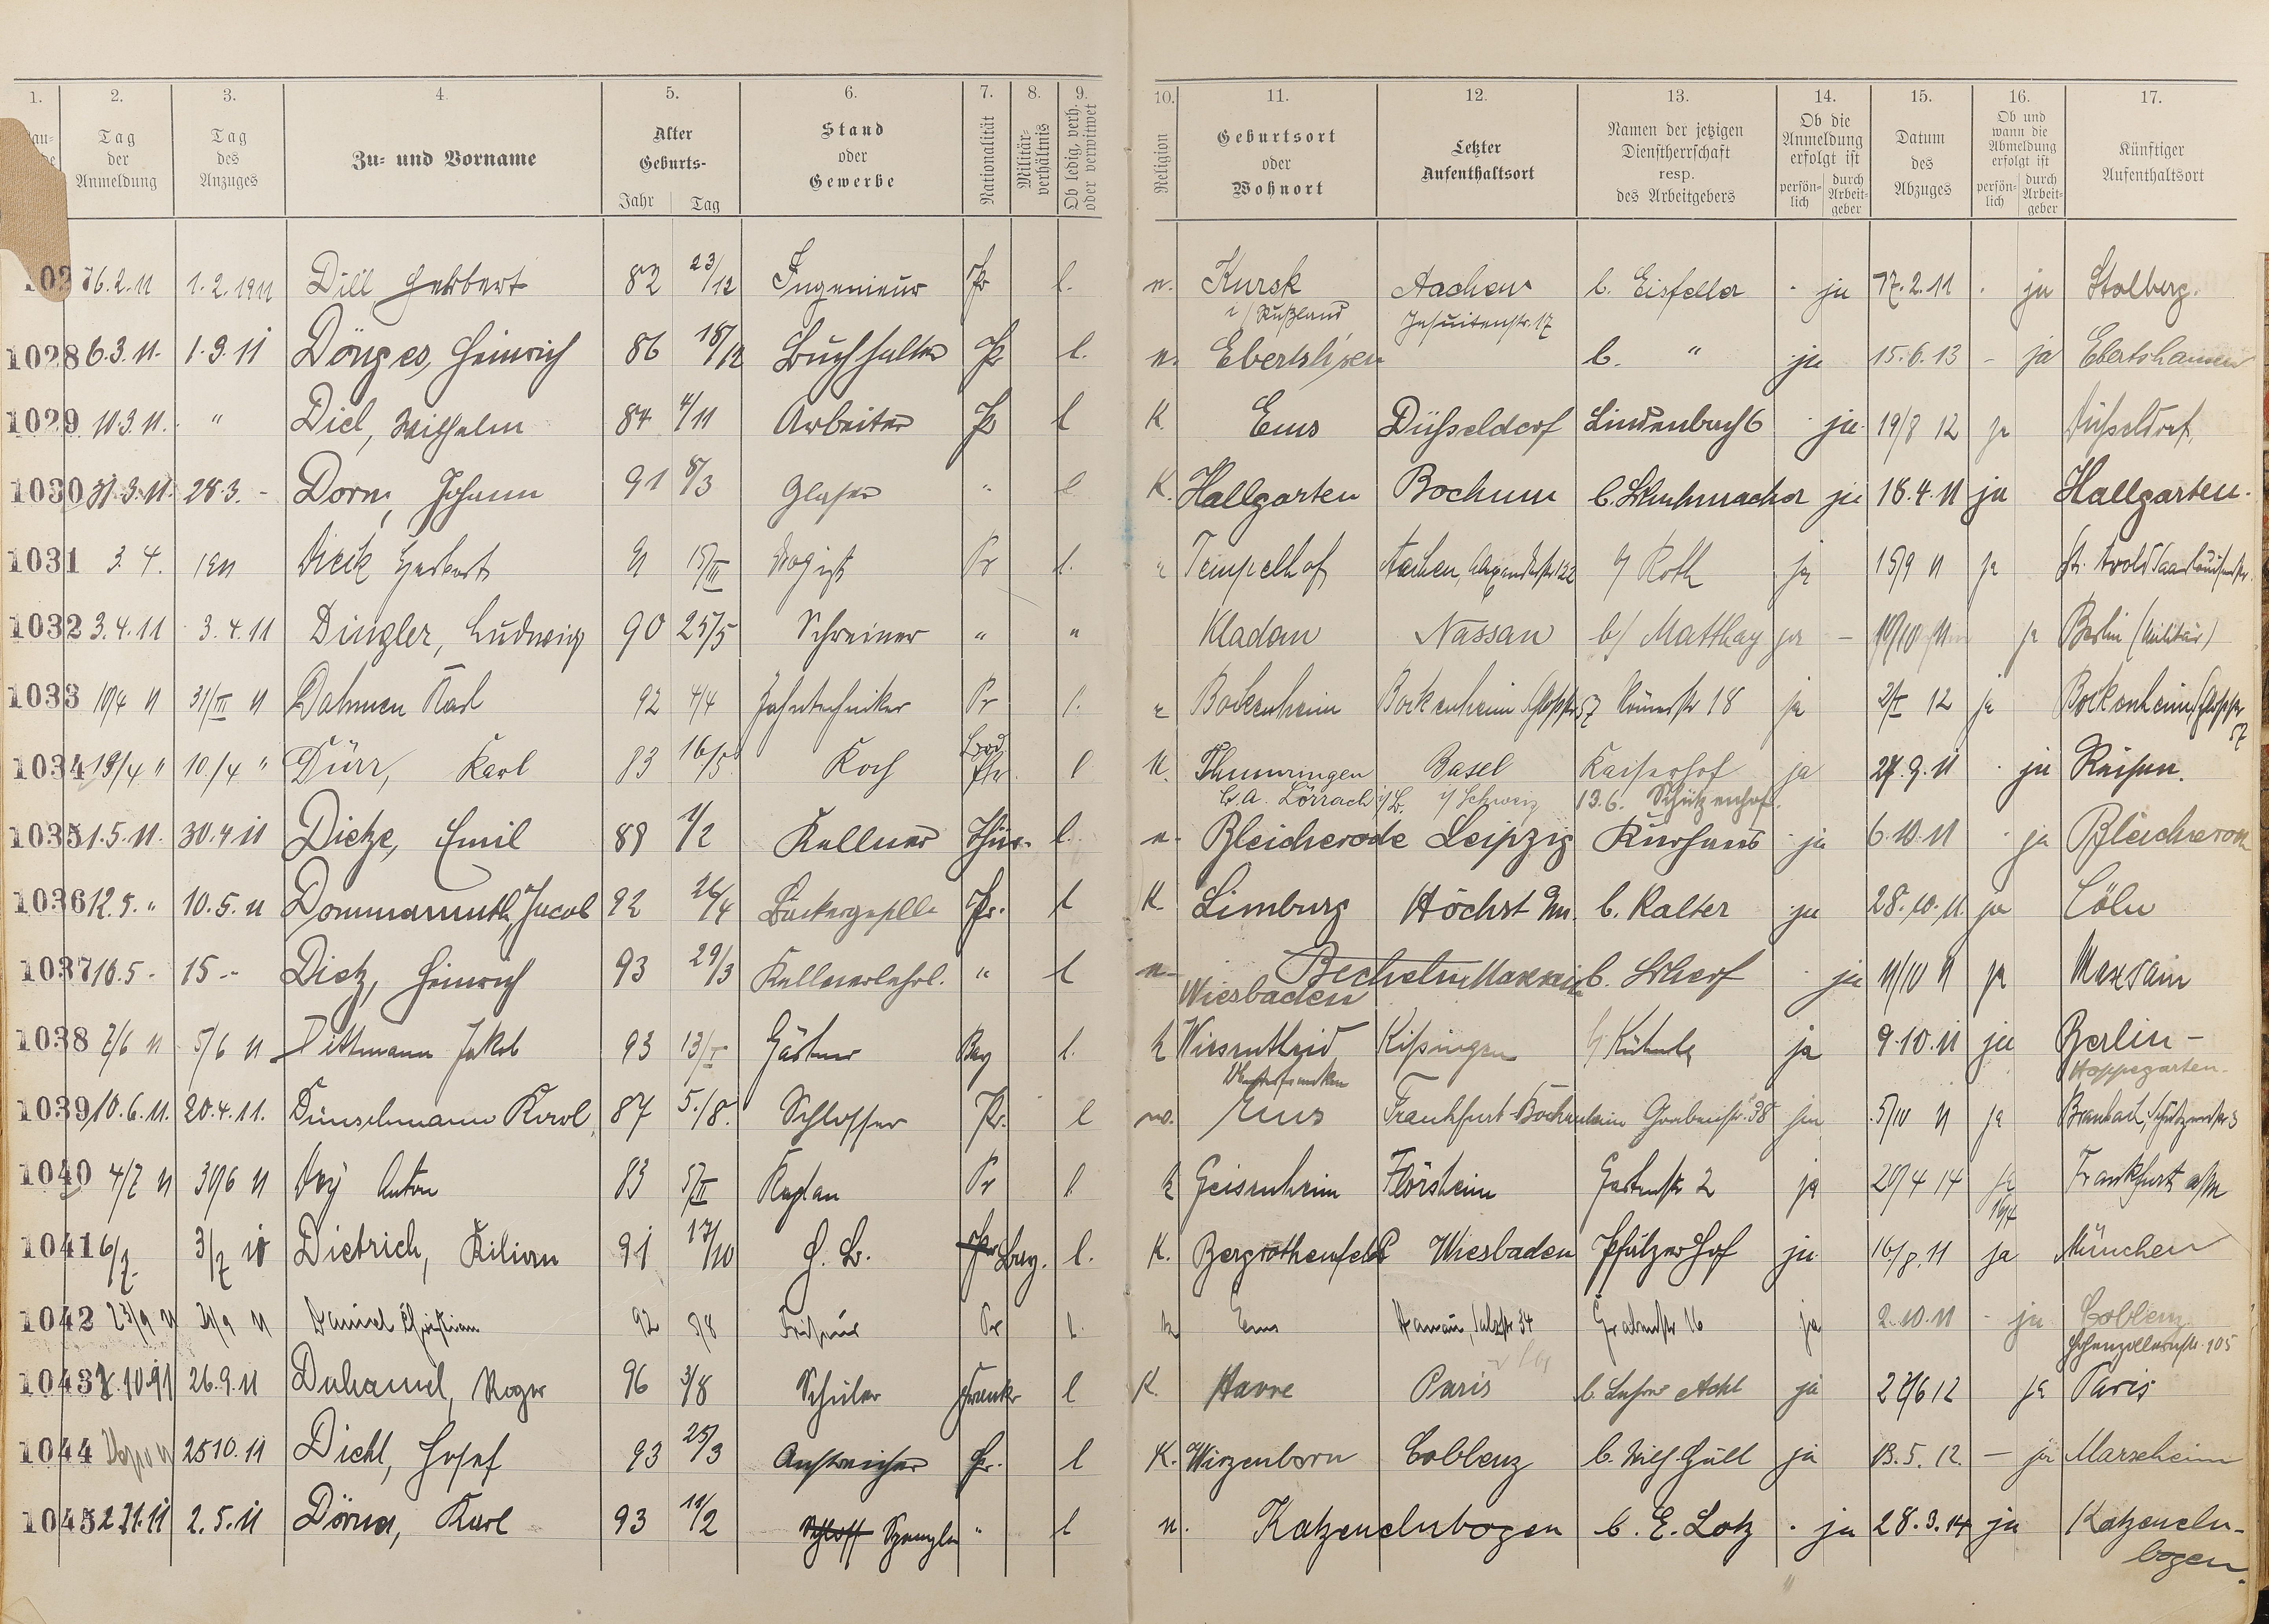 1. 2. 3. 4. 5. 6. 7. 8. 9. 10. 11. 12. 13. 14. 15. 16. 17.
Tag der Anmeldung
Tag des Anzuges
Zu- und Vorname
Alter Geburts-
Jahr Tag
Stand oder Gewerbe
Nationalität
Militär-verhältnis
Ob ledig, verh. oder verwitwet
Religion
Geburtsort oder Wohnort
Letzter Aufenthaltsort
Namen der jetzigen Dienstherrschaft resp. des Arbeitgebers
Ob die Anmeldung erfolgt ist
persön-lich durch Arbeit-geber
Datum des Abzuges
Ob und wann die Abmeldung erfolgt ist
persön-lich durch Arbeit-geber
Künftiger Aufenthaltsort
102 16.2.11 1.2.1911 Dill Herbert 82 23/12 Ingenieur Pr l. n. Kursk Aachen b. Eisfeller ja 17.2.11 ja Stolberg.
i/ Rußland Jesuitenstr. 17
1028 6.3.11. 1.3.11 Dönges, Heinrich 86 18/12 Buchhalter Pr l. n. Ebertshsen b. " ja 15.6.13 - ja Ebertshausen
1029 11.3.11. " Diel, Wilhelm 84 4/11 Arbeiter Pr l K Ems Düsseldorf Lindenbach 6 ja 19/8 12 ja Düsseldorf
1030 31.3.11. 28.3. - Dorn, Johann 91 8/3 Glaser " l K. Hallgarten Bochum b. Schuhmacher ja 18.4.11 ja Hallgarten.
1031 3.4. 1911 Dieck Herbert 91 15/III Drogist Pr l. Tempelhof Aachen, 122 b/ Roth ja 15/9 11 ja St. Avold
1032 3.4.11 3.4.11 Dingler, Ludwig 90 25/5 Schreiner " " Kladow Nassau b/ Matthay ja - 10/10 11 ja Berlin (Militär)
1033 10/4 11 31/III 11 Dahmen Karl 92 4/4 Zahntechniker Pr l. Bockenheim Bockenheim 57 Römerstr 18 ja 2/I 12 ja Bockenheim 57
1034 13/4 " 10./4 " Dürr, Karl 83 16/5 Koch l n. Thumringen Basel Kaiserhof ja 27.9.11 ja Reisen.
B.A. Lörrach i/B. i/ Schweiz 13.6. Schützenhof.
1035 1.5.11. 30.4.11 Dietze, Emil 88 1/2 Kellner Thür. l. n. Bleicherode Leipzig Kurhaus ja 6.10.11 ja Bleicherode
1036 12.5. " 10.5.11 Dommermuth, Jacob 92 26/4 Bäckergeselle Pr. l K. Limburg Höchst b. Kalter ja 28.10.11. ja Cöln
1037 16.5. - 15 - Dietz, Heinrich 93 29/3 Kellnerlehrl. " l n Becheln Maxsain b. Scherf ja 11/10 11 ja Maxsain
Wiesbaden
1038 7/6 11 5/6 11 Dittmann Jakob 93 13/I Gärtner Bay l. k Wiesentheid Kissingen ja 9.10.11 ja Berlin -
Hoppegarten.
1039 10.6.11. 20.4.11. Dünschmann Karl, 87 5./8. Schlosser Pr. l Ems Frankfurt-Bockenheim Grabenstr. 38 ja 5/10 11 ja Braubach,
1040 4/7 11 30/6 11 Dey Anton 83 5/II Kaplan Pr l. k Geisenheim Flörsheim Gartenstr 2 ja 20/4 14 ja Frankfurt a/M
1041 6/7. 3/7 11 Dietrich, Kilian 91 17/10 H. B. Bay. l. K. Bergrothenfels Wiesbaden Pfälzer Hof ja 16/8.11 ja München
1042 23/9 11 21/9 11 Daniel Christian 92 5/8 Friseur Pr l. k Ems Hanau 34 Grabenstr 16 ja 2.10.11 - ja Coblenz
Hohenzollernstr. 105
1043 26.9.11 Duhamel, Roger 96 3/8 Schüler Frankr l K. Havre Paris b. Lehrer ja 27/6 12 ja Paris
1044 25 10.11 Diehl, Josef 93 25/3 Anstreicher Pr. l K. Wirzenborn Coblenz b. Wilh. Güll ja 13.5.12. - ja
1045 2.11.11 2.5.11 Dörner, Karl 93 11/2 Schloss Spengler " l n. Katzenelnbogen b. E. Lotz ja 28.3.14 ja Katzeneln-
bogen.